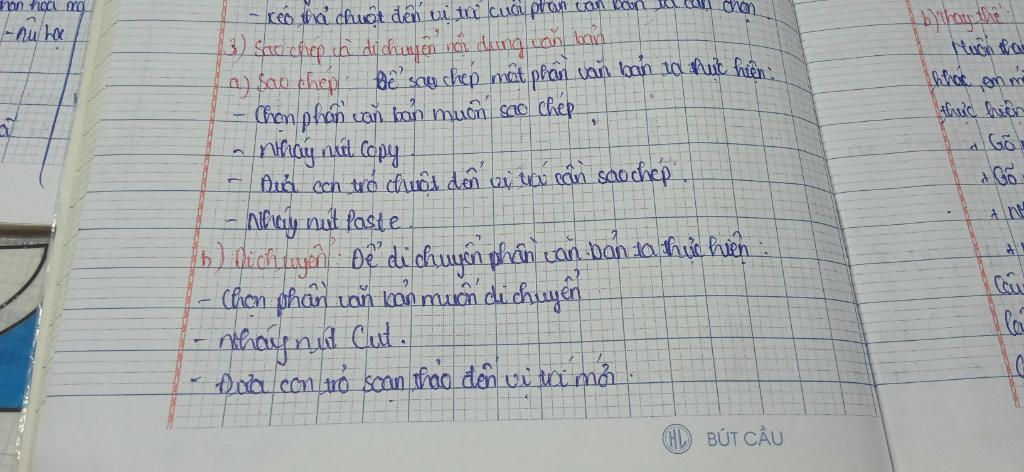 - Nữ học
- kéo thả chuột đến vị trí cuối phần văn bản ta cần chọn.
3) Sao chép và di chuyển nội dung văn bản
a) Sao chép: Để sao chép một phần văn bản ta thực hiện:
- Chọn phần văn bản muốn sao chép.
- Nháy nút Copy
- Đưa con trỏ chuột đến vị trí cần sao chép.
- Nháy nút Paste
b) Di chuyển: Để di chuyển phần văn bản ta thực hiện:
- Chọn phần văn bản muốn di chuyển
- Nháy nút Cut.
- Đưa con trỏ soạn thảo đến vị trí mới.
HL BÚT CẦU
b) Thay thế
Muốn
khác, em
thực hiện
+ Gõ
+ Gõ
+
+